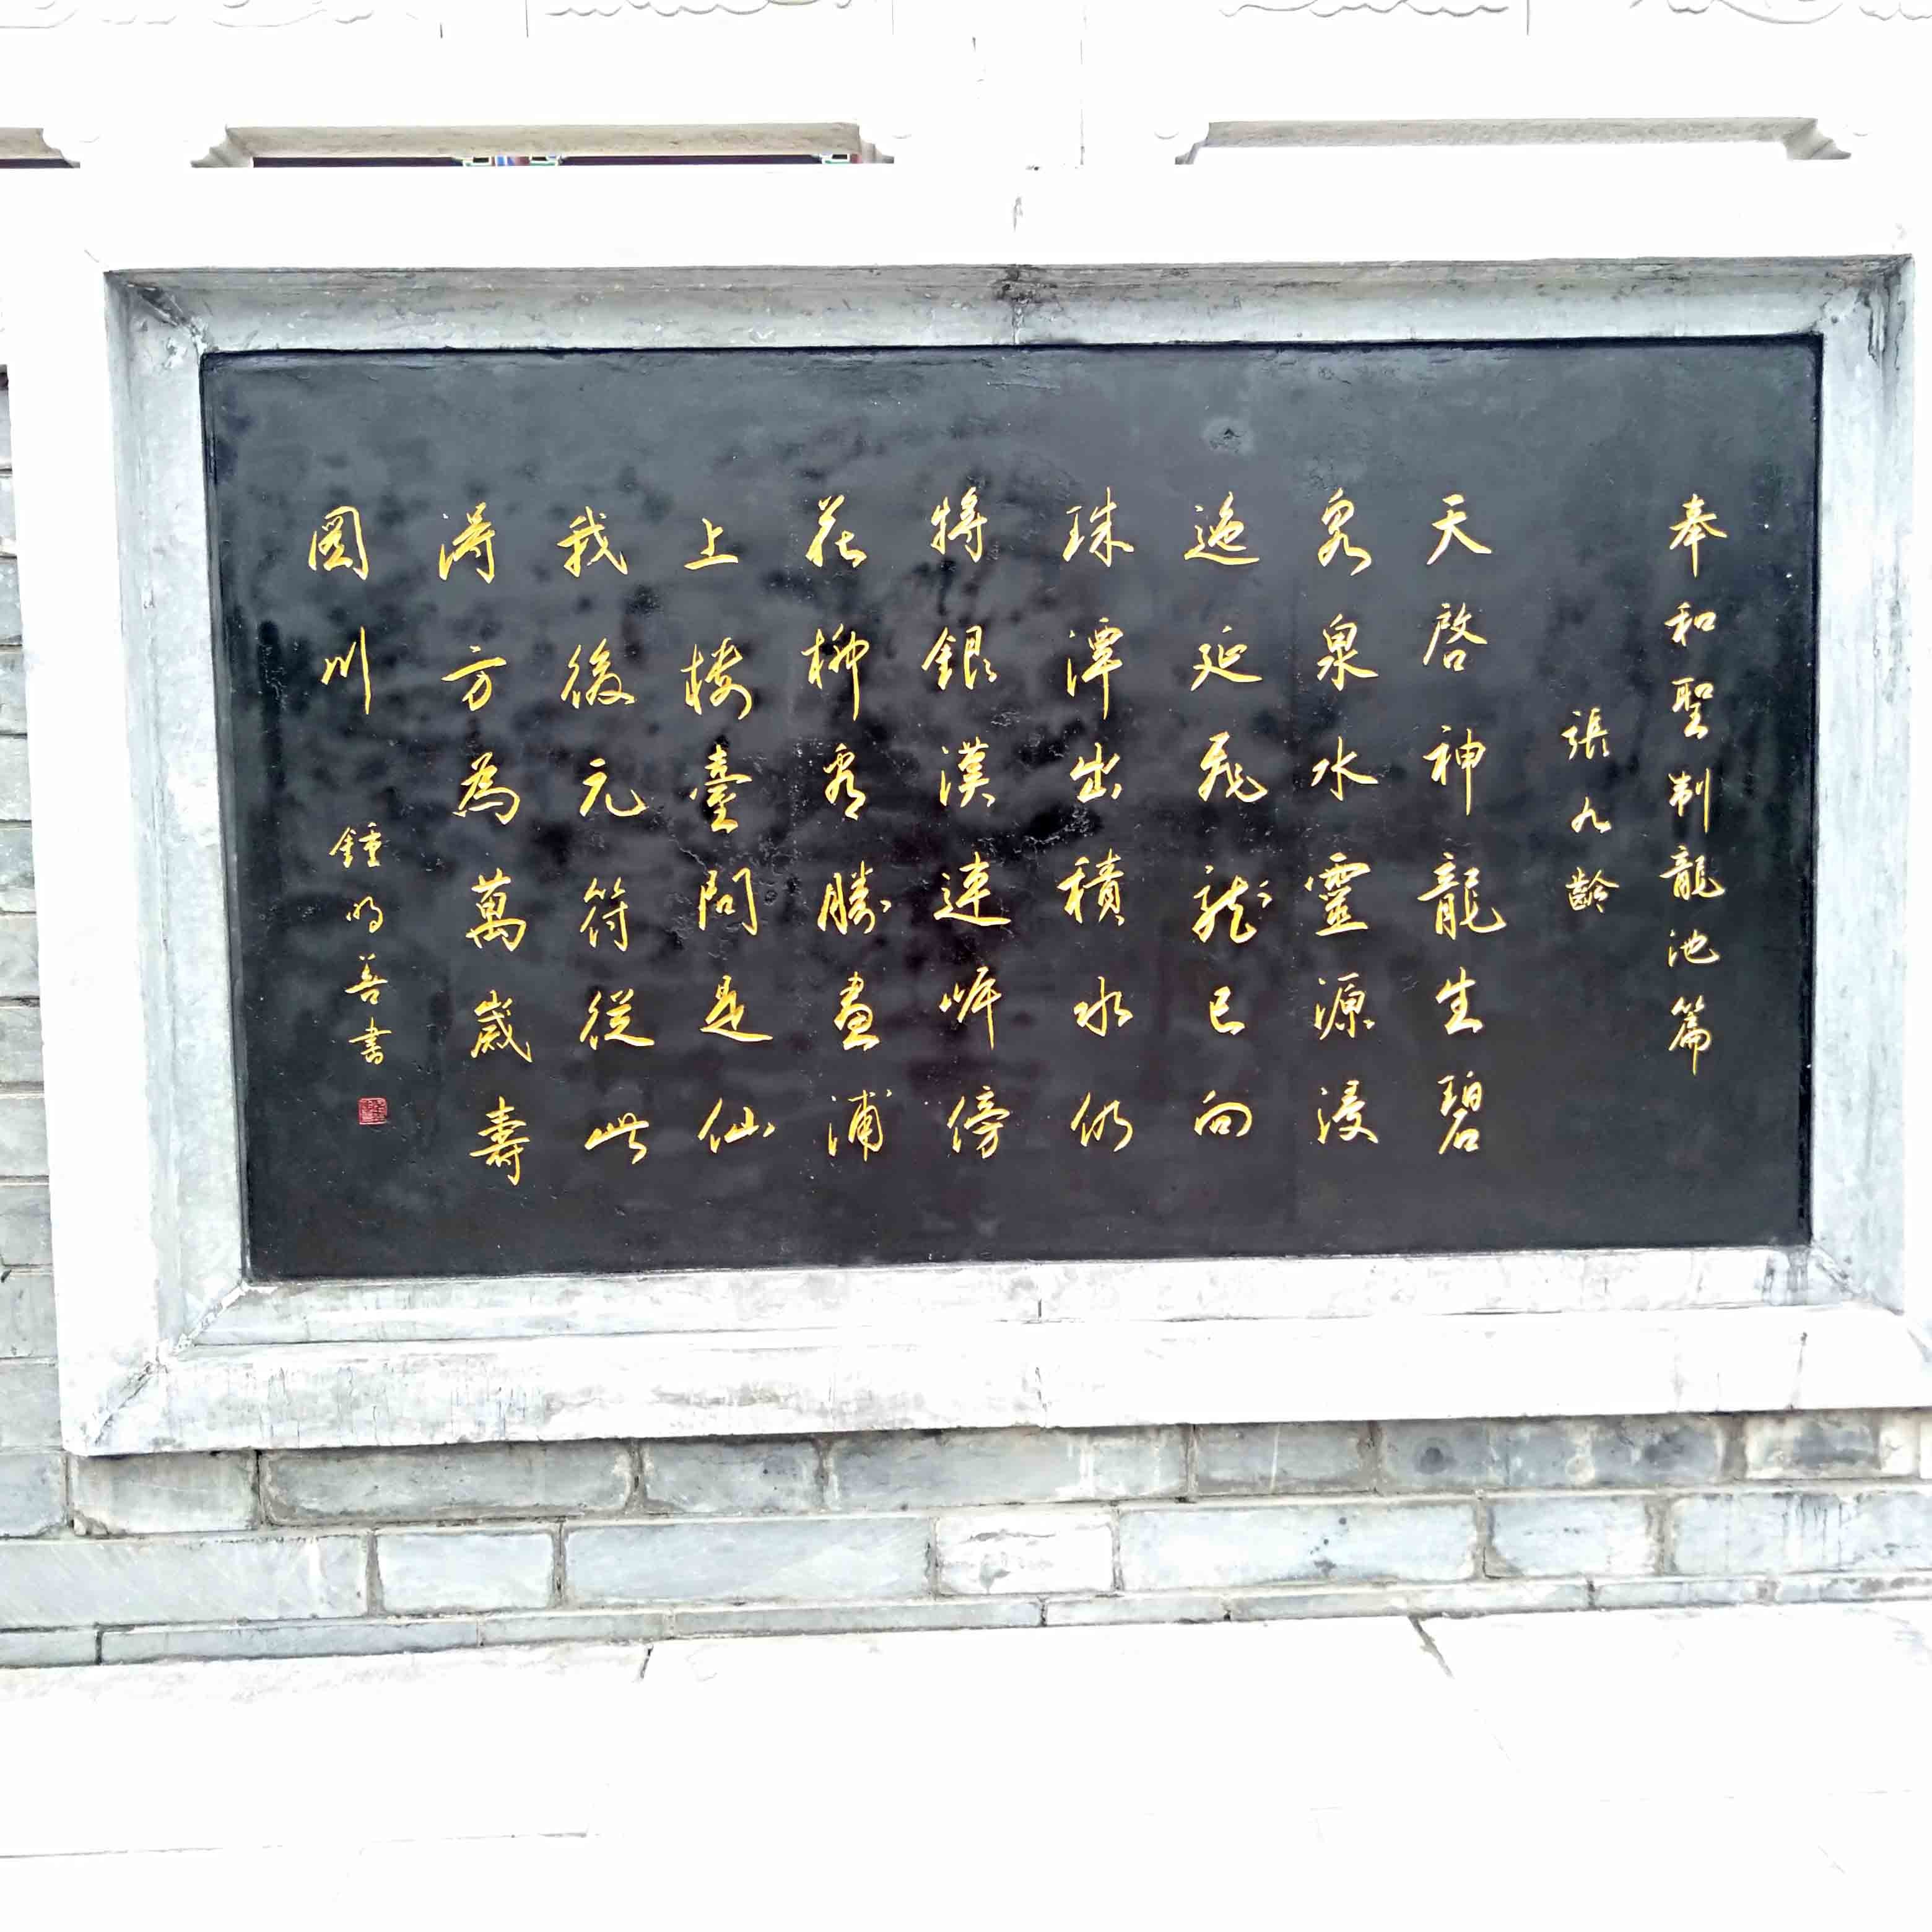 奉和聖制龍池篇
張九齡
天啓神龍生碧
泉泉水靈源浸
迤延飛龍已向
珠潭出積水仍
將銀漢連岸傍
花柳看勝畫浦
上樓臺問是仙
我後元符從此
得方為萬歲壽
圖川
鍾明善書